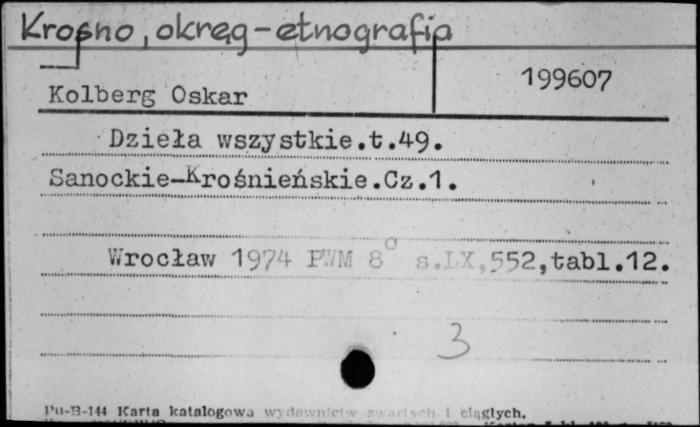 Krosno, okręg-etnografia
199607
Kolberg Oskar
Dzieła wszystkie.t.49.
Sanockie-Krośnieńskie.Cz.1.
Wrocław 1974 PWM 8° s.LX,552,tabl.12.
3
Pu-B-144 Karta katalogowa wydawnictw zwartych i ciągłych.